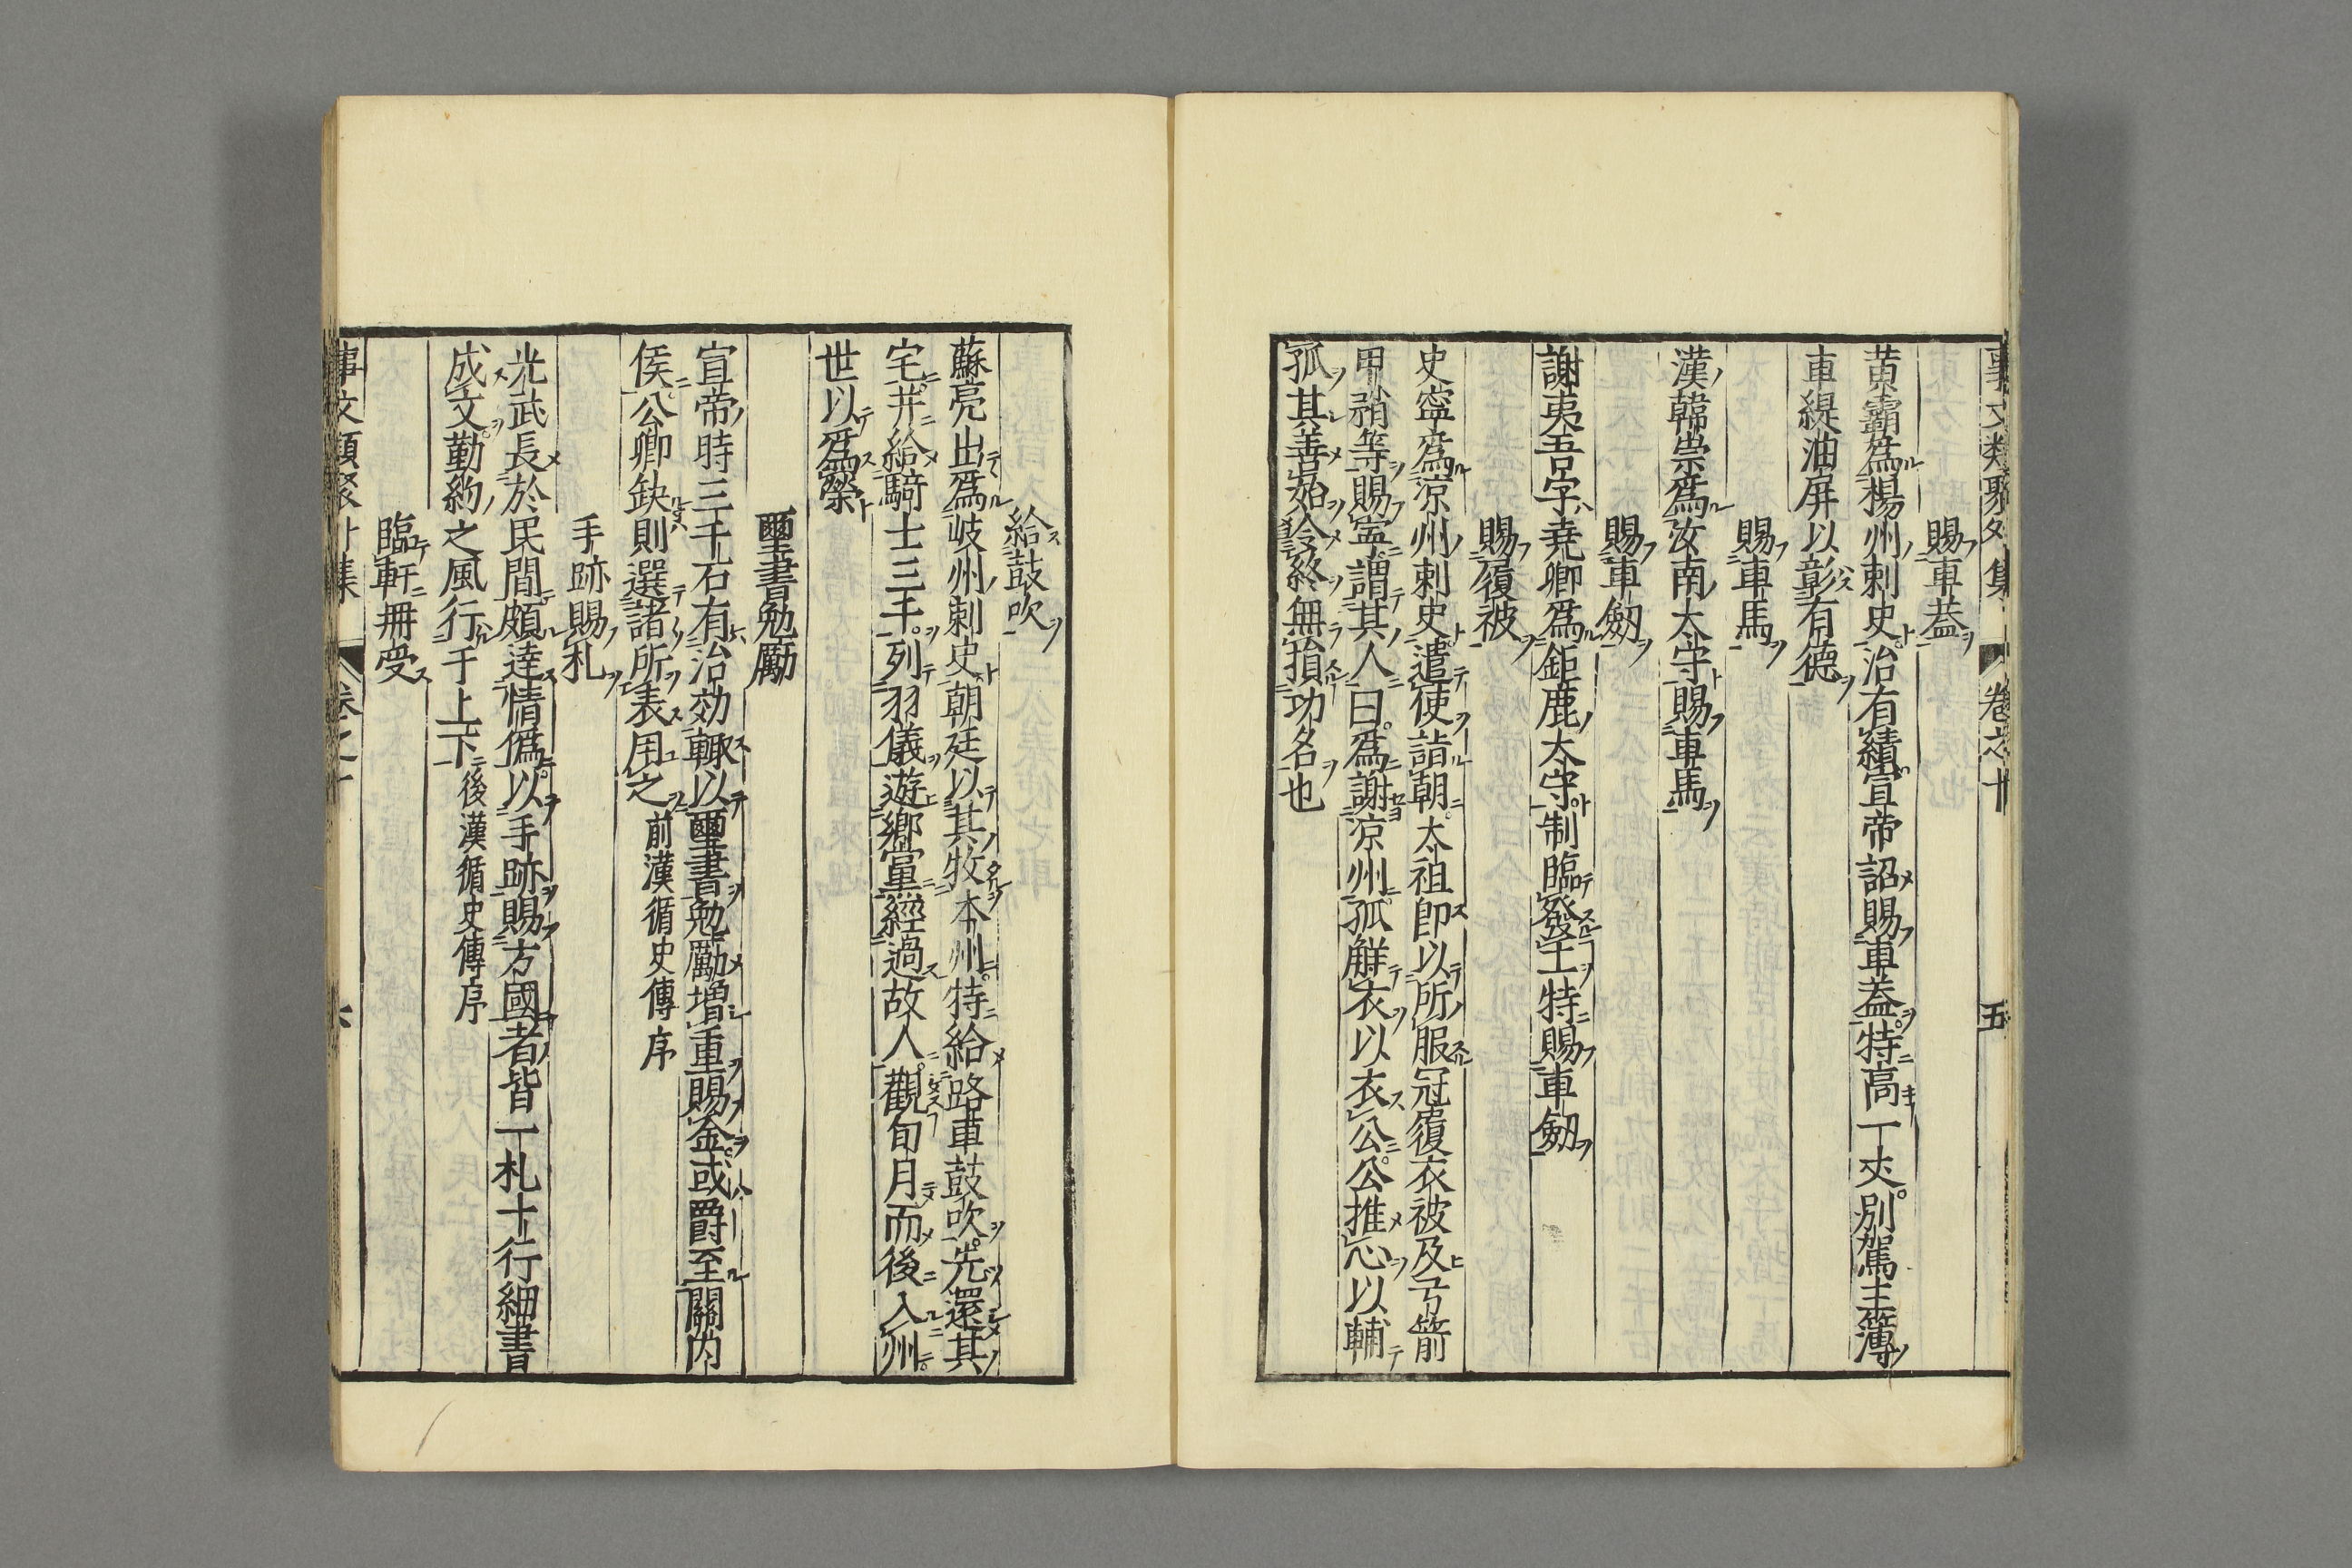 事文類聚外集 卷之十 五
賜車蓋
黄霸爲楊州刺史治有績宣帝詔賜車蓋特高一丈別駕主簿
車緹油屏以彰有德
賜車馬
漢韓崇爲汝南太守賜車馬
賜車劔
謝夷吾字堯卿爲鉅鹿太守制臨發王特賜車劔
賜復被
史寧爲凉州刺史遣使詣朝太祖卽以所服冠復衣被及弓箭
甲矟等賜寧謂其人曰爲謝凉州孤解衣以衣公公推心以輔
孤其善始令終無損功名也
給鼓吹
蘇亮出爲岐州刺史朝廷以其牧本州特給路車鼓吹先還其
宅并給騎士三千列羽儀遊鄉黨經過故人觀旬月而後入州
世以爲榮
璽書勉勵
宣帝時三千石有治効輙以璽書勉勵增重賜金或爵至關內
侯公卿缺則選諸所表用之前漢循史傳序
手跡賜札
光武長於民間頗逹情僞以手跡賜方國者皆一札十行細書
成文勤約之風行于上下後漢循史傳序
臨軒冊受
事文類聚外集 卷之十 六